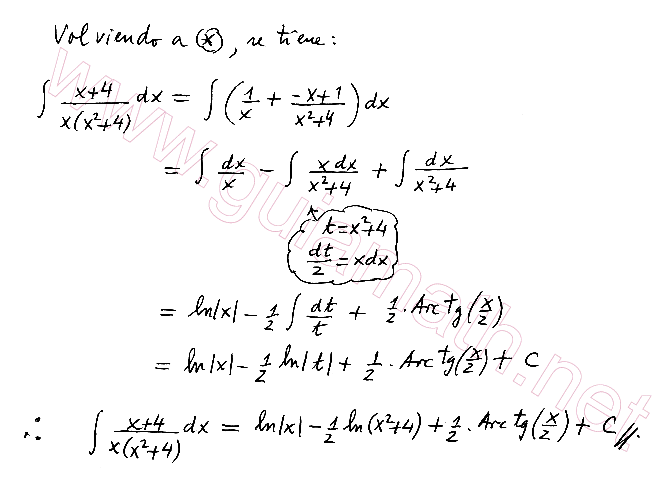 Volviendo a ⊛, se tiene:
∫ (x+4)/(x(x²+4)) dx = ∫ (1/x + (-x+1)/(x²+4)) dx
= ∫ dx/x - ∫ x dx/(x²+4) + ∫ dx/(x²+4)
t = x²+4
dt/2 = xdx
= ln|x| - 1/2 ∫ dt/t + 1/2 · Arctg(x/2)
= ln|x| - 1/2 ln|t| + 1/2 · Arctg(x/2) + C
∴ ∫ (x+4)/(x(x²+4)) dx = ln|x| - 1/2 ln(x²+4) + 1/2 · Arctg(x/2) + C //.
www.guiamath.net